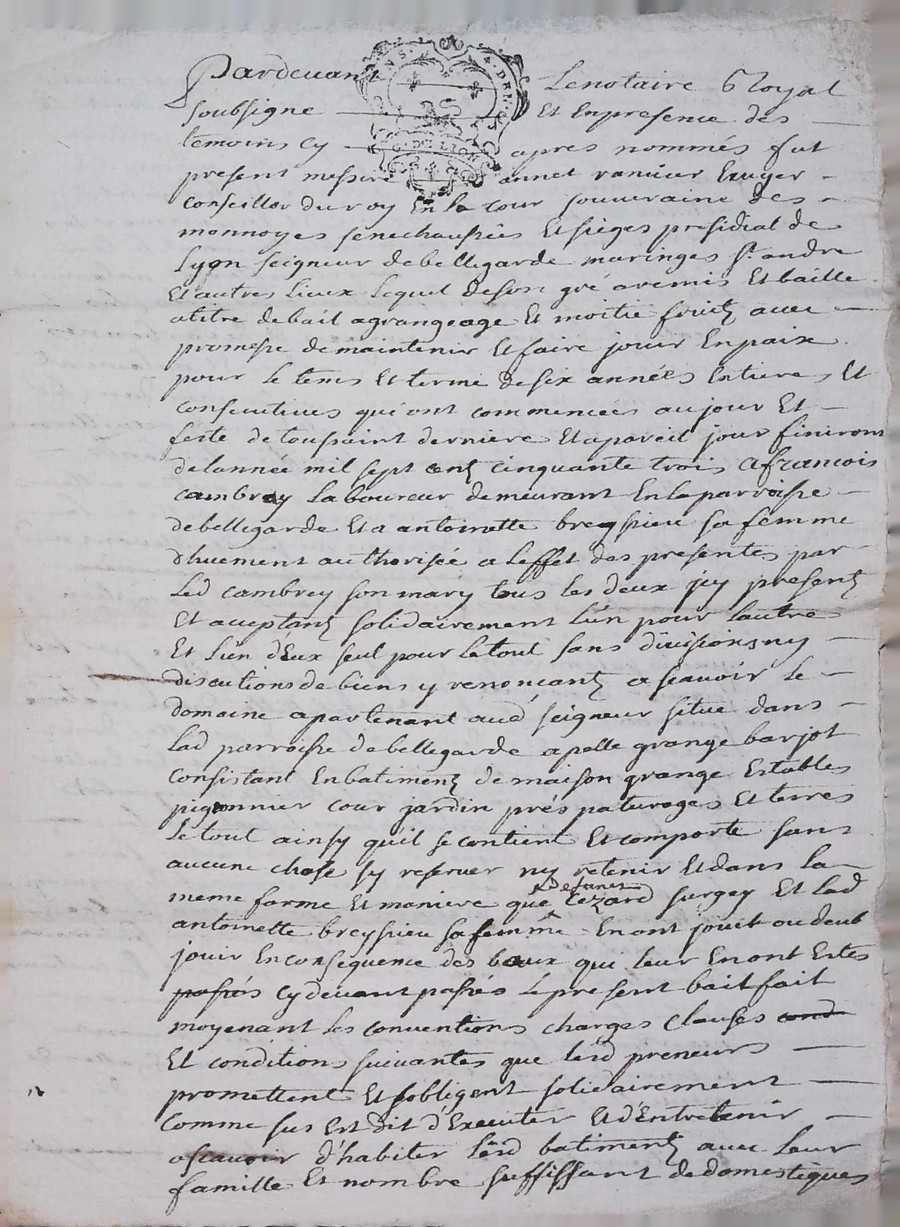 Pardevant Le notaire Royal
soubsigne Et En presence des
temoins cy apres nommés fut
present messire annet ranvier Ecuyer
conseiller du roy En la cour souveraine des
monnoyes senechaussées Et sieges presidial de
Lyon seigneur de bellegarde maringes st andre
Et autres Lieux Lequel de son gré a remis Et baille
a titre de bail a grangeage Et moitié fruitz avec
promesse de maintenir Et faire jouir En paix
pour Le tems Et terme de six années Entieres Et
consecutives qui ont commencées au jour Et
feste de toussaint derniere Et a pareil jour finiront
de lannée mil sept cent cinquante trois a francois
cambrey Laboureur demeurant En la parroisse
de bellegarde Et a antoinette breyssieu sa femme
dhuement authorisée a Leffet des presentes par
Led cambrey son mary tous les deux jcy presentz
Et acceptantz solidairement L'un pour Lautre
Et L'un d'Eux seul pour Le tout sans divisions ny
discutions de biens y renoncantz a scavoir Le
domaine apartenant aud seigneur situé dans
Lad parroisse de bellegarde apellé grange barjot
consistant En batimentz de maison grange Estables
pigeonnier cour jardin prés paturages Et terres
Le tout ainsy qu'il se contient Et comporte sans
aucune chose sy reserver ny retenir Et dans La
meme forme Et maniere que defunt Cezard surgey Et Lad
antoinette breyssieu sa femme En ont jouit ou deub
jouir En consequence des baux qui leur En ont Estes
passés cy devant passés Le present bail fait
moyenant Les conventions charges clauses cond
Et conditions suivantes que lesd preneurs
promettent Et s'obligent solidairement
comme sus Est dit d'Executer Et d'Entretenir
a scavoir d'habiter Lesd batimentz avec Leur
famille Et nombre suffissant de domestiques